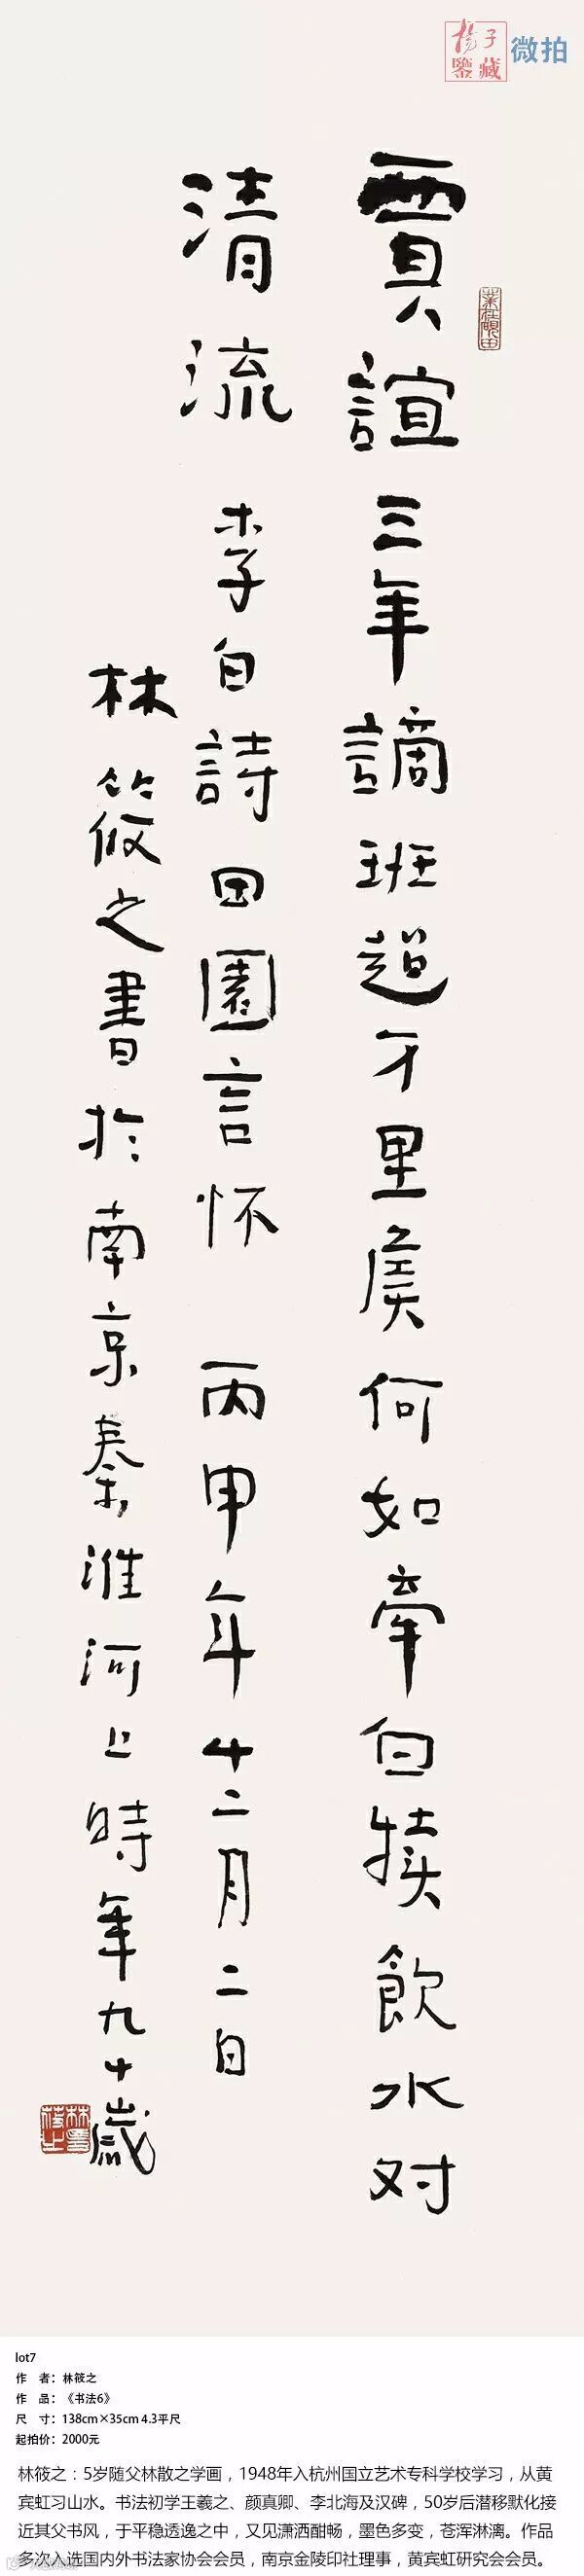 楊子
鑒藏
微拍
賈誼三年謫班超万里矦何如牽白犢飲水对
清流 李白詩田園言怀 丙申年十二月二日
林筱之書於南京秦淮河上時年九十歲
lot7
作 者：林筱之
作 品：《书法6》
尺 寸：138cm×35cm 4.3平尺
起拍价：2000元
林筱之：5岁随父林散之学画，1948年入杭州国立艺术专科学校学习，从黄
宾虹习山水。书法初学王羲之、颜真卿、李北海及汉碑，50岁后潜移默化接
近其父书风，于平稳透逸之中，又见潇洒酣畅，墨色多变，苍浑淋漓。作品
多次入选国内外书法家协会会员，南京金陵印社理事，黄宾虹研究会会员。